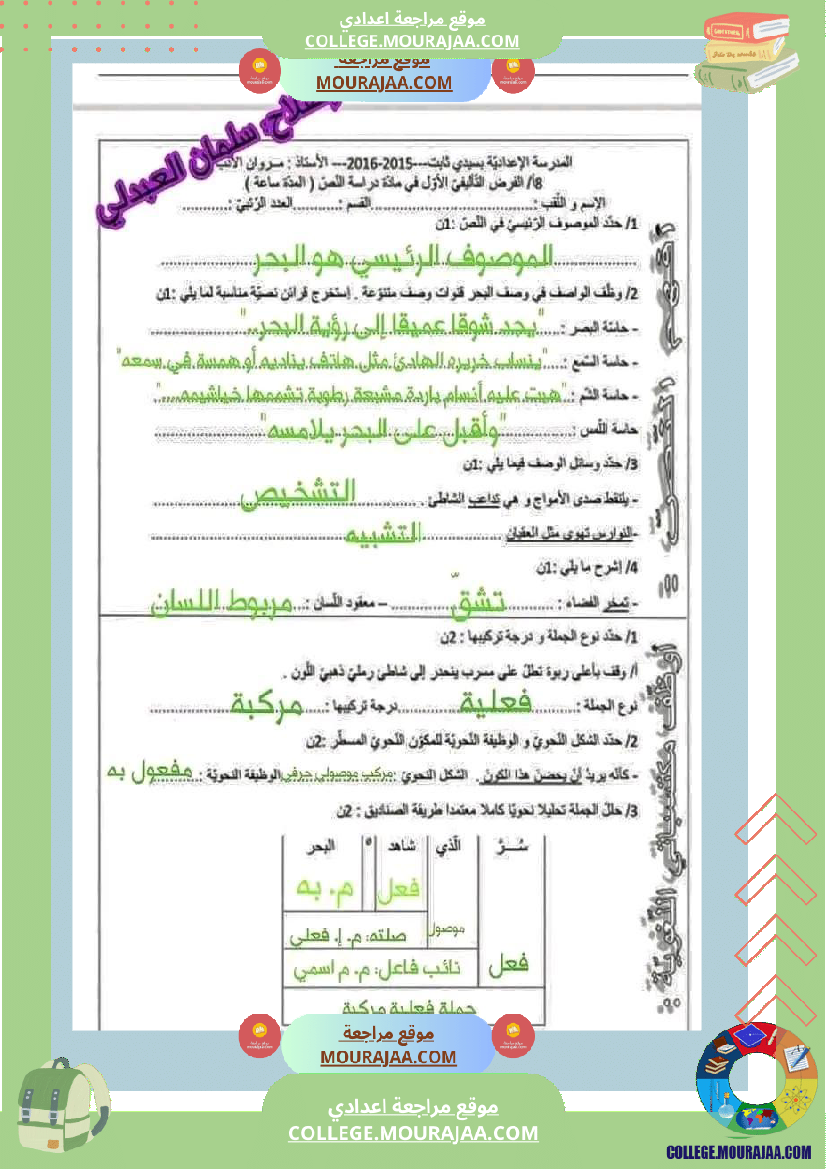 موقع مراجعة اعدادي
COLLEGE.MOURAJAA.COM
موقع مراجعة
MOURAJAA.COM
إصلاح: سلمان العبدلي
المدرسة الإعداديّة بسيدي ثابت---2015-2016--- الأستاذ : مروان
8/ الفرض التّأليفيّ الأوّل في مادّة دراسة النّصّ ( المدّة ساعة )
الإسم و اللّقب :..........القسم :..........العدد الرّتبيّ :..........
1/ حدّد الموصوف الرّئيسيّ في النّصّ :1ن
الموصوف الرئيسي هو البحر
2/ وظّف الواصف في وصف البحر قنوات وصف متنوّعة . إستخرج قرائن نصيّة مناسبة لما يلي :1ن
- حاسّة البصر : "يجد شوقا عميقا إلى رؤية البحر.."
- حاسة السّمع : "ينساب خريره الهادئ مثل هاتف يناديه أو همسة في سمعه"
- حاسة الشّم : "هبت عليه أنسام باردة مشبعة رطوبة تشممها خياشيمه..."
حاسة اللّمس : "وأقبل على البحر يلامسه"
3/ حدّد وسائل الوصف فيما يلي :1ن
- يلتقط صدى الأمواج و هي تداعب الشاطئ . التشخيص
-النوارس تهوي مثل العقبان التشبيه
4/ إشرح ما يلي :1ن
- تمخر الفضاء : تشقّ – معقود اللّسان : مربوط اللسان
أفهم النّصّ :
1/ حدّد نوع الجملة و درجة تركيبها : 2ن
أ/ وقف بأعلى ربوة تطلّ على مسرب ينحدر إلى شاطئ رمليّ ذهبيّ اللّون .
نوع الجملة : فعلية درجة تركيبها : مركبة
2/ حدّد الشكل النّحويّ و الوظيفة النّحويّة للمكوّن النّحويّ المسطّر :2ن
- كأنّه يريد أن يحضن هذا الكون . الشكل النحويّ : مركب موصولي حرفي الوظيفة النحويّة : مفعول به
3/ حلّل الجملة تحليلا نحويّا كاملا معتمدا طريقة الصناديق : 2ن
سُرَّ الّذي شاهد ه البحر
فعل م. به
موصول صلته: م. إ. فعلي
فعل نائب فاعل: م. م اسمي
جملة فعلية مركبة
أوظّف مكتسباتي اللّغويّة :
موقع مراجعة
MOURAJAA.COM
موقع مراجعة اعدادي
COLLEGE.MOURAJAA.COM
COLLEGE.MOURAJAA.COM